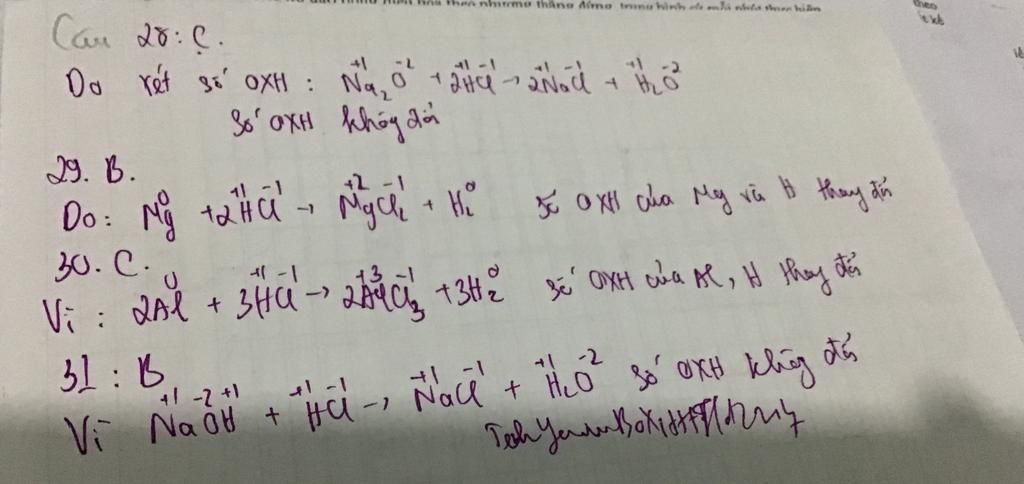 theo
Câu 28: C.
Do xét số OXH : Na₂⁺¹O⁻² + 2H⁺¹Cl⁻¹ → 2Na⁺¹Cl⁻¹ + H₂⁺¹O⁻²
Số OXH không đổi
29. B.
Do: Mg⁰ + 2H⁺¹Cl⁻¹ → Mg⁺²Cl₂⁻¹ + H₂⁰ số OXH của Mg và H thay đổi
30. C.
Vì : 2Al⁰ + 3H⁺¹Cl⁻¹ → 2Al⁺³Cl₃⁻¹ + 3H₂⁰ số OXH của Al, H thay đổi
31 : B
Vì Na⁺¹O⁻²H⁺¹ + H⁺¹Cl⁻¹ → Na⁺¹Cl⁻¹ + H₂⁺¹O⁻² số OXH không đổi